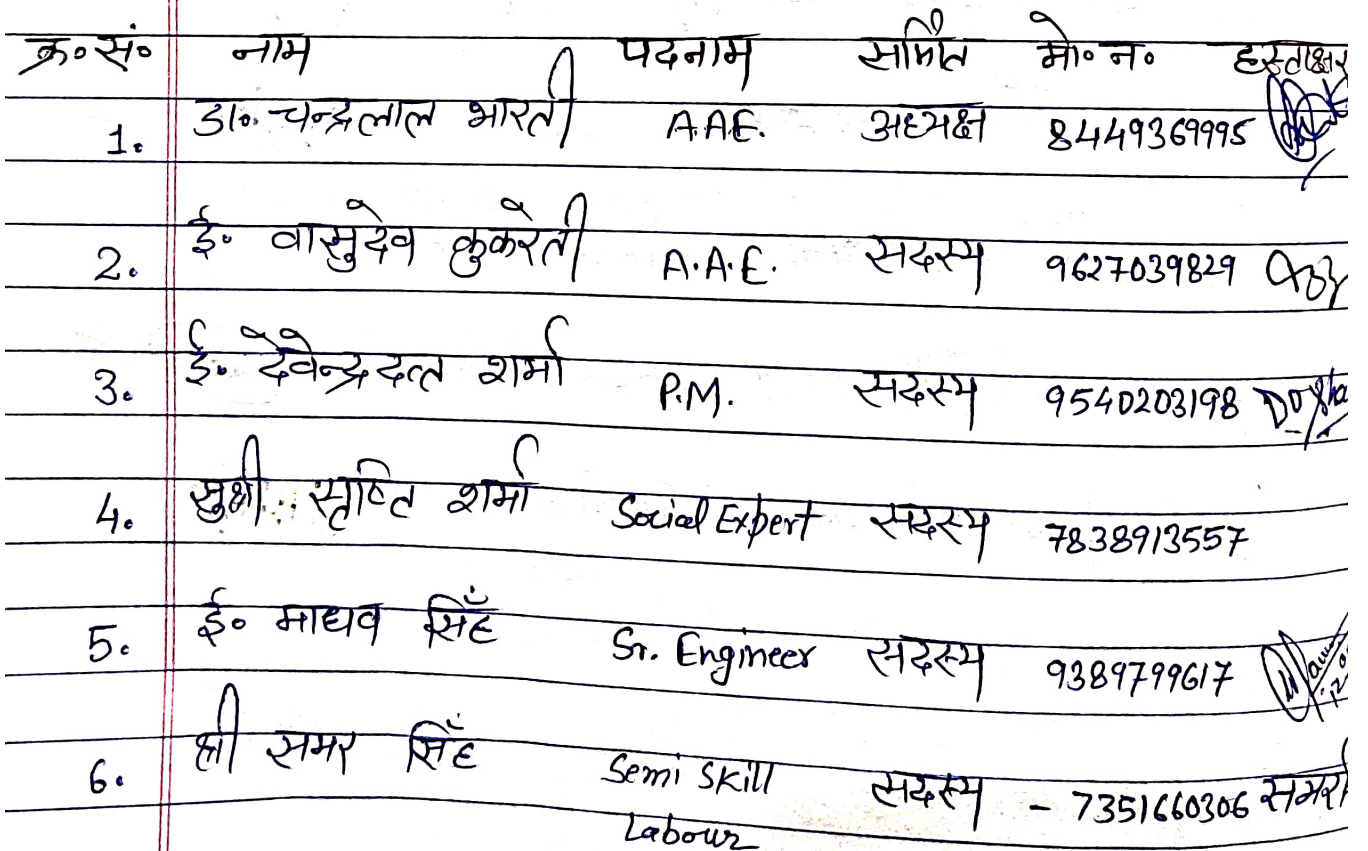 क्र॰सं॰ नाम पदनाम समिति मो॰ न॰ हस्ताक्षर
1. डा॰ चन्द्रलाल भारती A.A.E. अध्यक्ष 8449369995
2. ई॰ वासुदेव कुकरेती A.A.E. सदस्य 9627039829
3. ई॰ देवेन्द्र दत्त शर्मा P.M. सदस्य 9540203198
4. सुश्री सृष्टि शर्मा Social Expert सदस्य 7838913557
5. ई॰ माधव सिँह Sr. Engineer सदस्य 9389799617
6. श्री समर सिँह Semi Skill सदस्य - 7351660306 समर
Labour